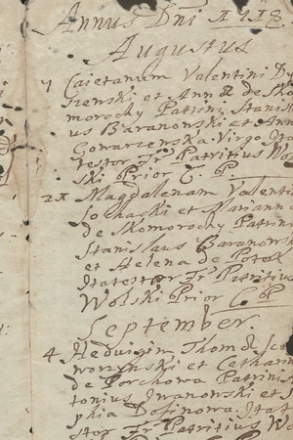 Annus Dni 1718
Augustus
Caietanum Valentini Dy
szenski et Annæ de Sko
morochy Patrini Stanisla
us Baranowski et Anna
Gowarzenska Virgo Ita
testor Fr Patritius Wol
ski Prior C. P.
Magdalenam Valentini
Sochaski et Marianna
de Skomorochy Patrini
Stanislaus Baranowski
et Helena de Potok
Itatestor Fr Patritius
Wolski Prior C. P.
September.
4. Hedvigim Thomæ Szcz
worzynski et Catharin
de Porchowa Patrini
tonius Iwanowski et So
phia Dosinowa. Itat
stor Fr Patritius Wo